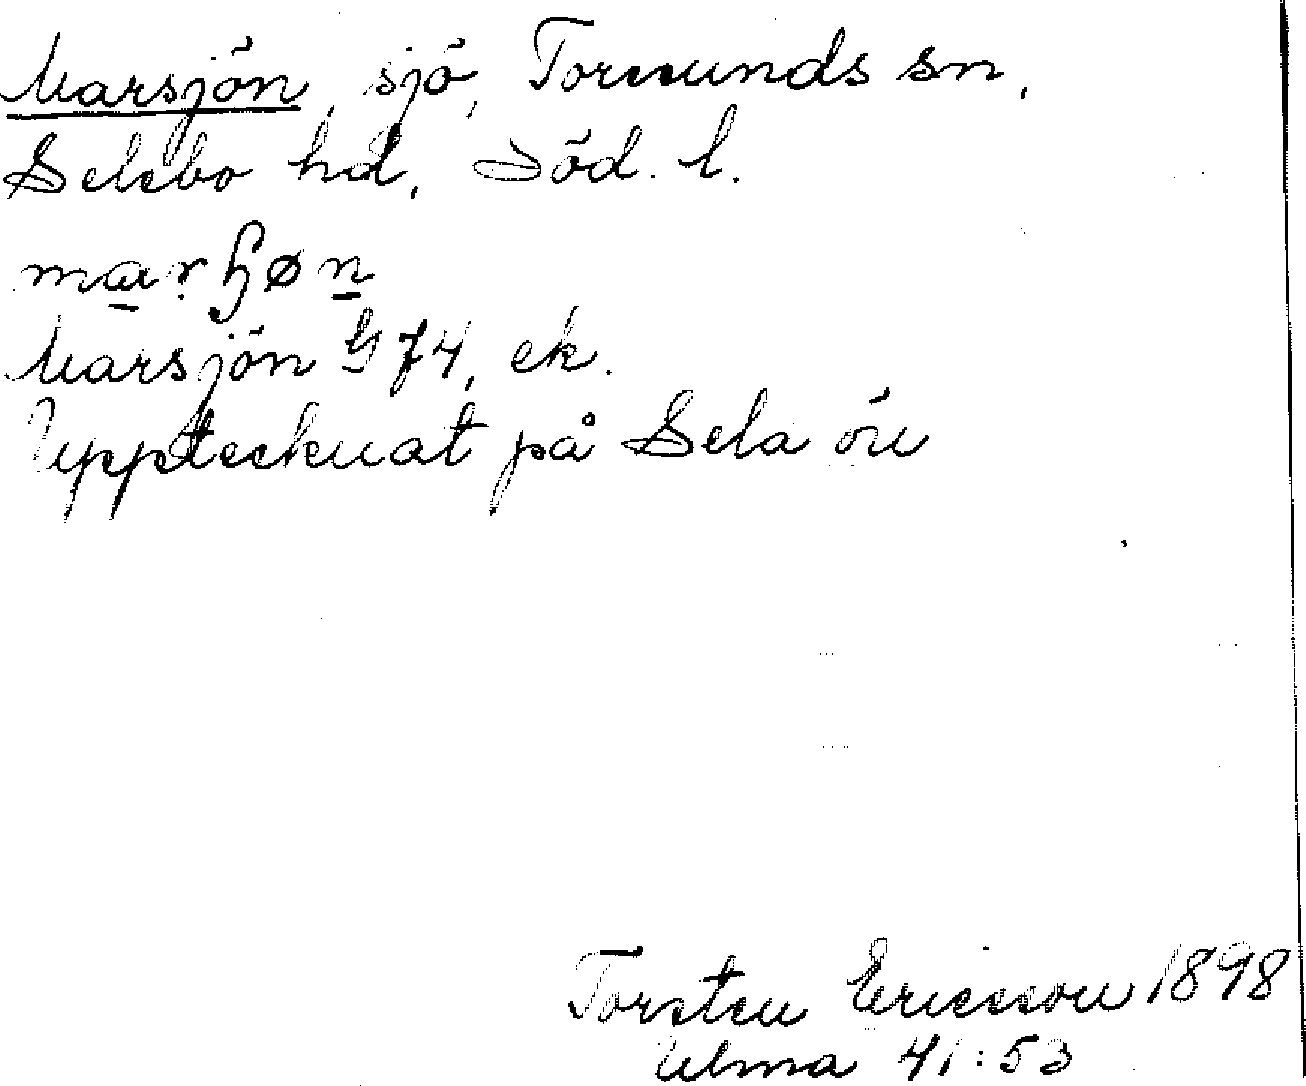 Marsjön, sjö, Torsunds sn,
Selebo hd, Söd. l.
Marsjön G 74, ek.
Uppteckuat på Sela ön
Torsten Ericsson 1898
Ulma 41:53